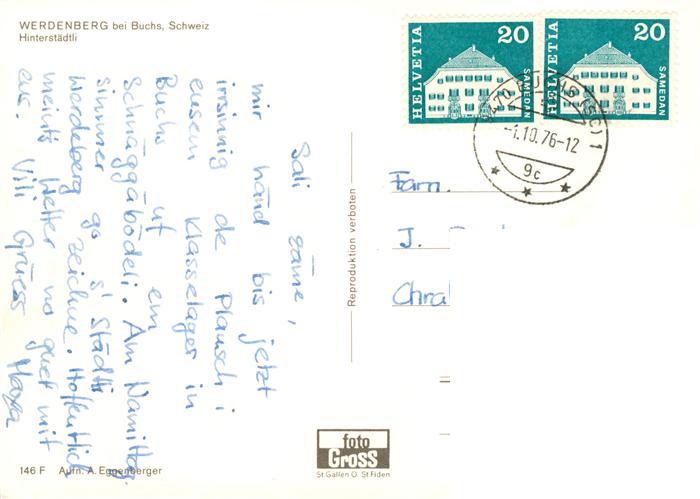 WERDENBERG bei Buchs, Schweiz
Hinterstädtli
Sali zäme,
mir händ bis jetzt
irrsinnig de Plausch i
eusem Klasselager in
Buchs uf em
Schnäggäbödeli. Am Namittag
simmer go s'Städtli
Werdeberg zeichne. Hoffentlich
meints Wetter no guet mit
eus. Vili Grüess
Reproduktion verboten
HELVETIA
20
SAMEDAN
HELVETIA
20
SAMEDAN
-1.10.76-12
9c
Fam.
J.
foto
Gross
St.Gallen O. St.Fiden
146 F Aufn. A. Eggenberger